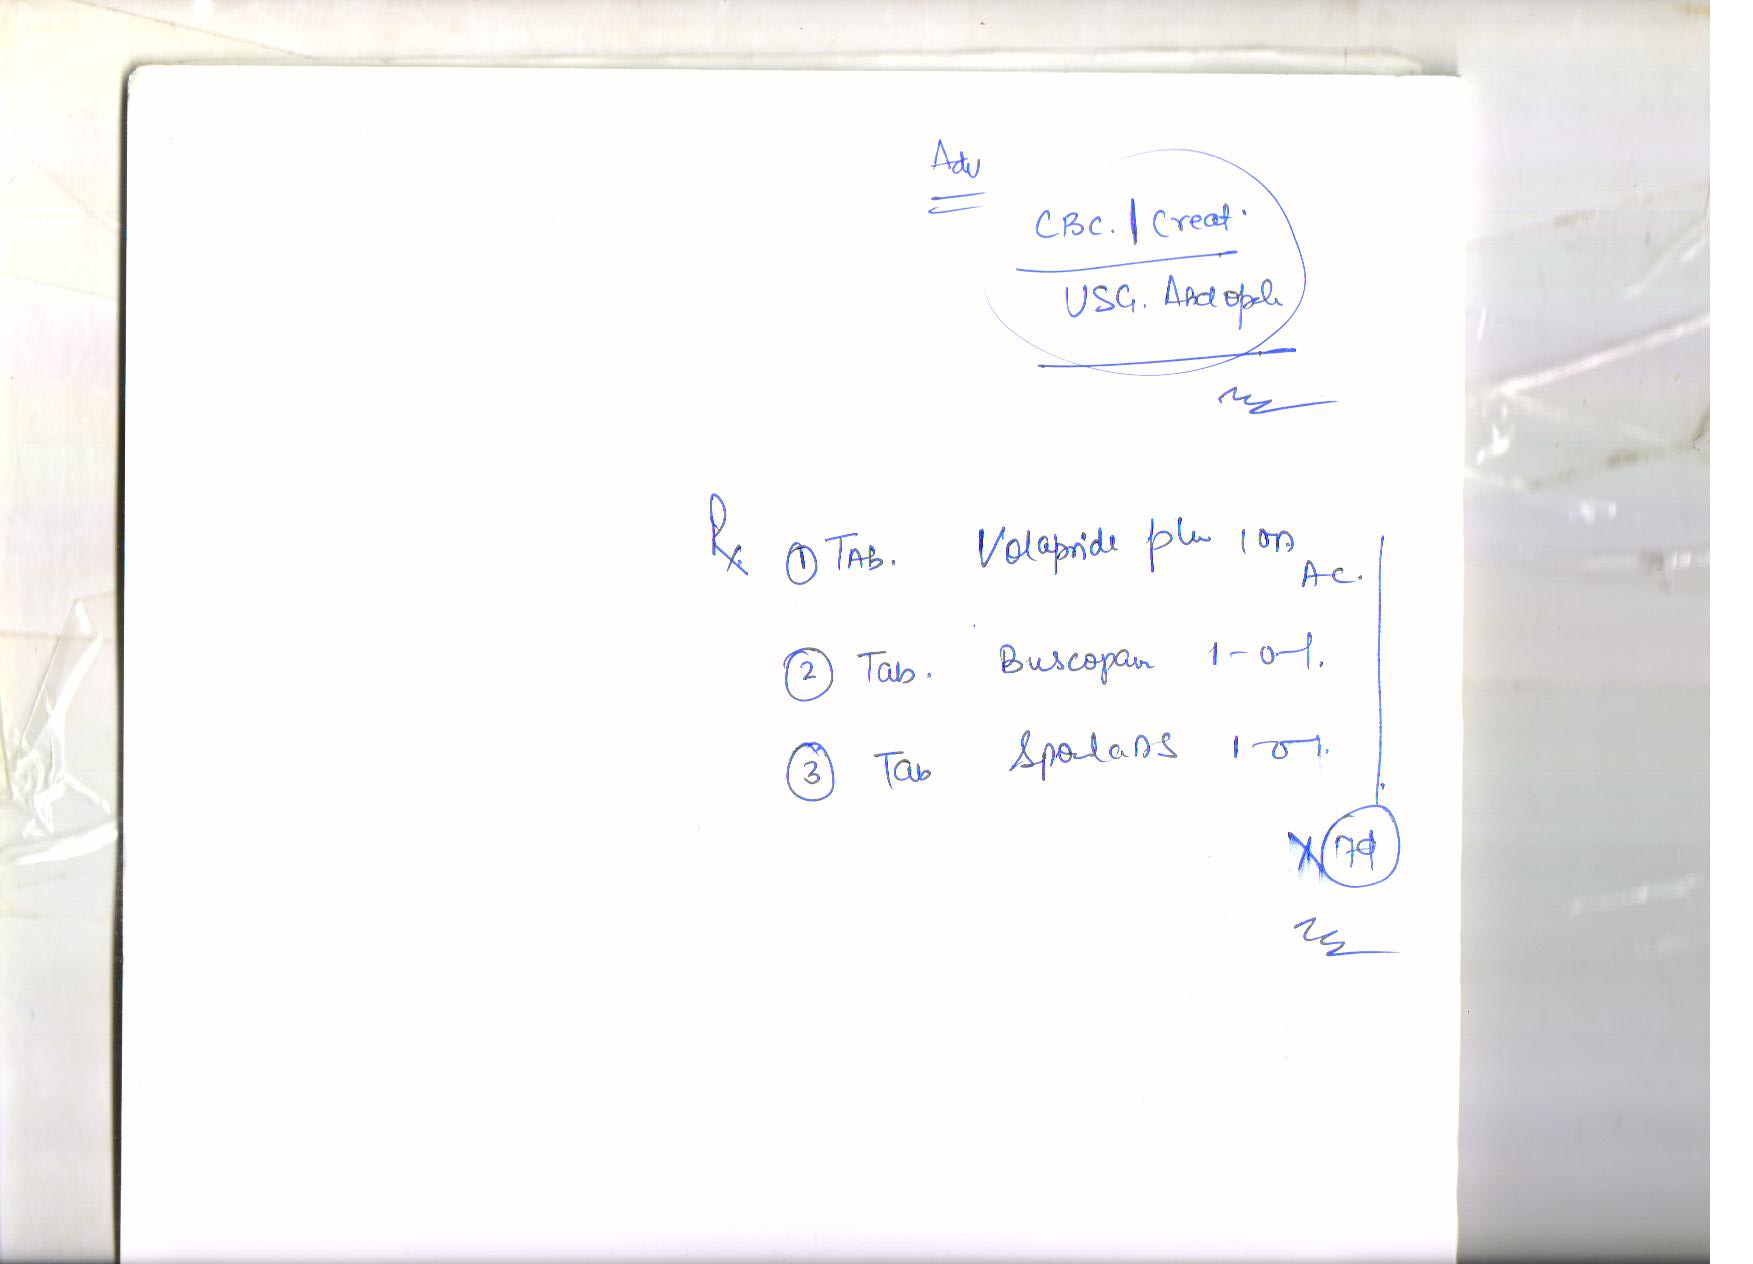 Adv
CBC. | Creat.
USG. Abd
Rx ① TAB. Volapride plu 1 OD
AC.
② Tab. Buscopan 1-0-1.
③ Tab 1-0-1.
X 7d